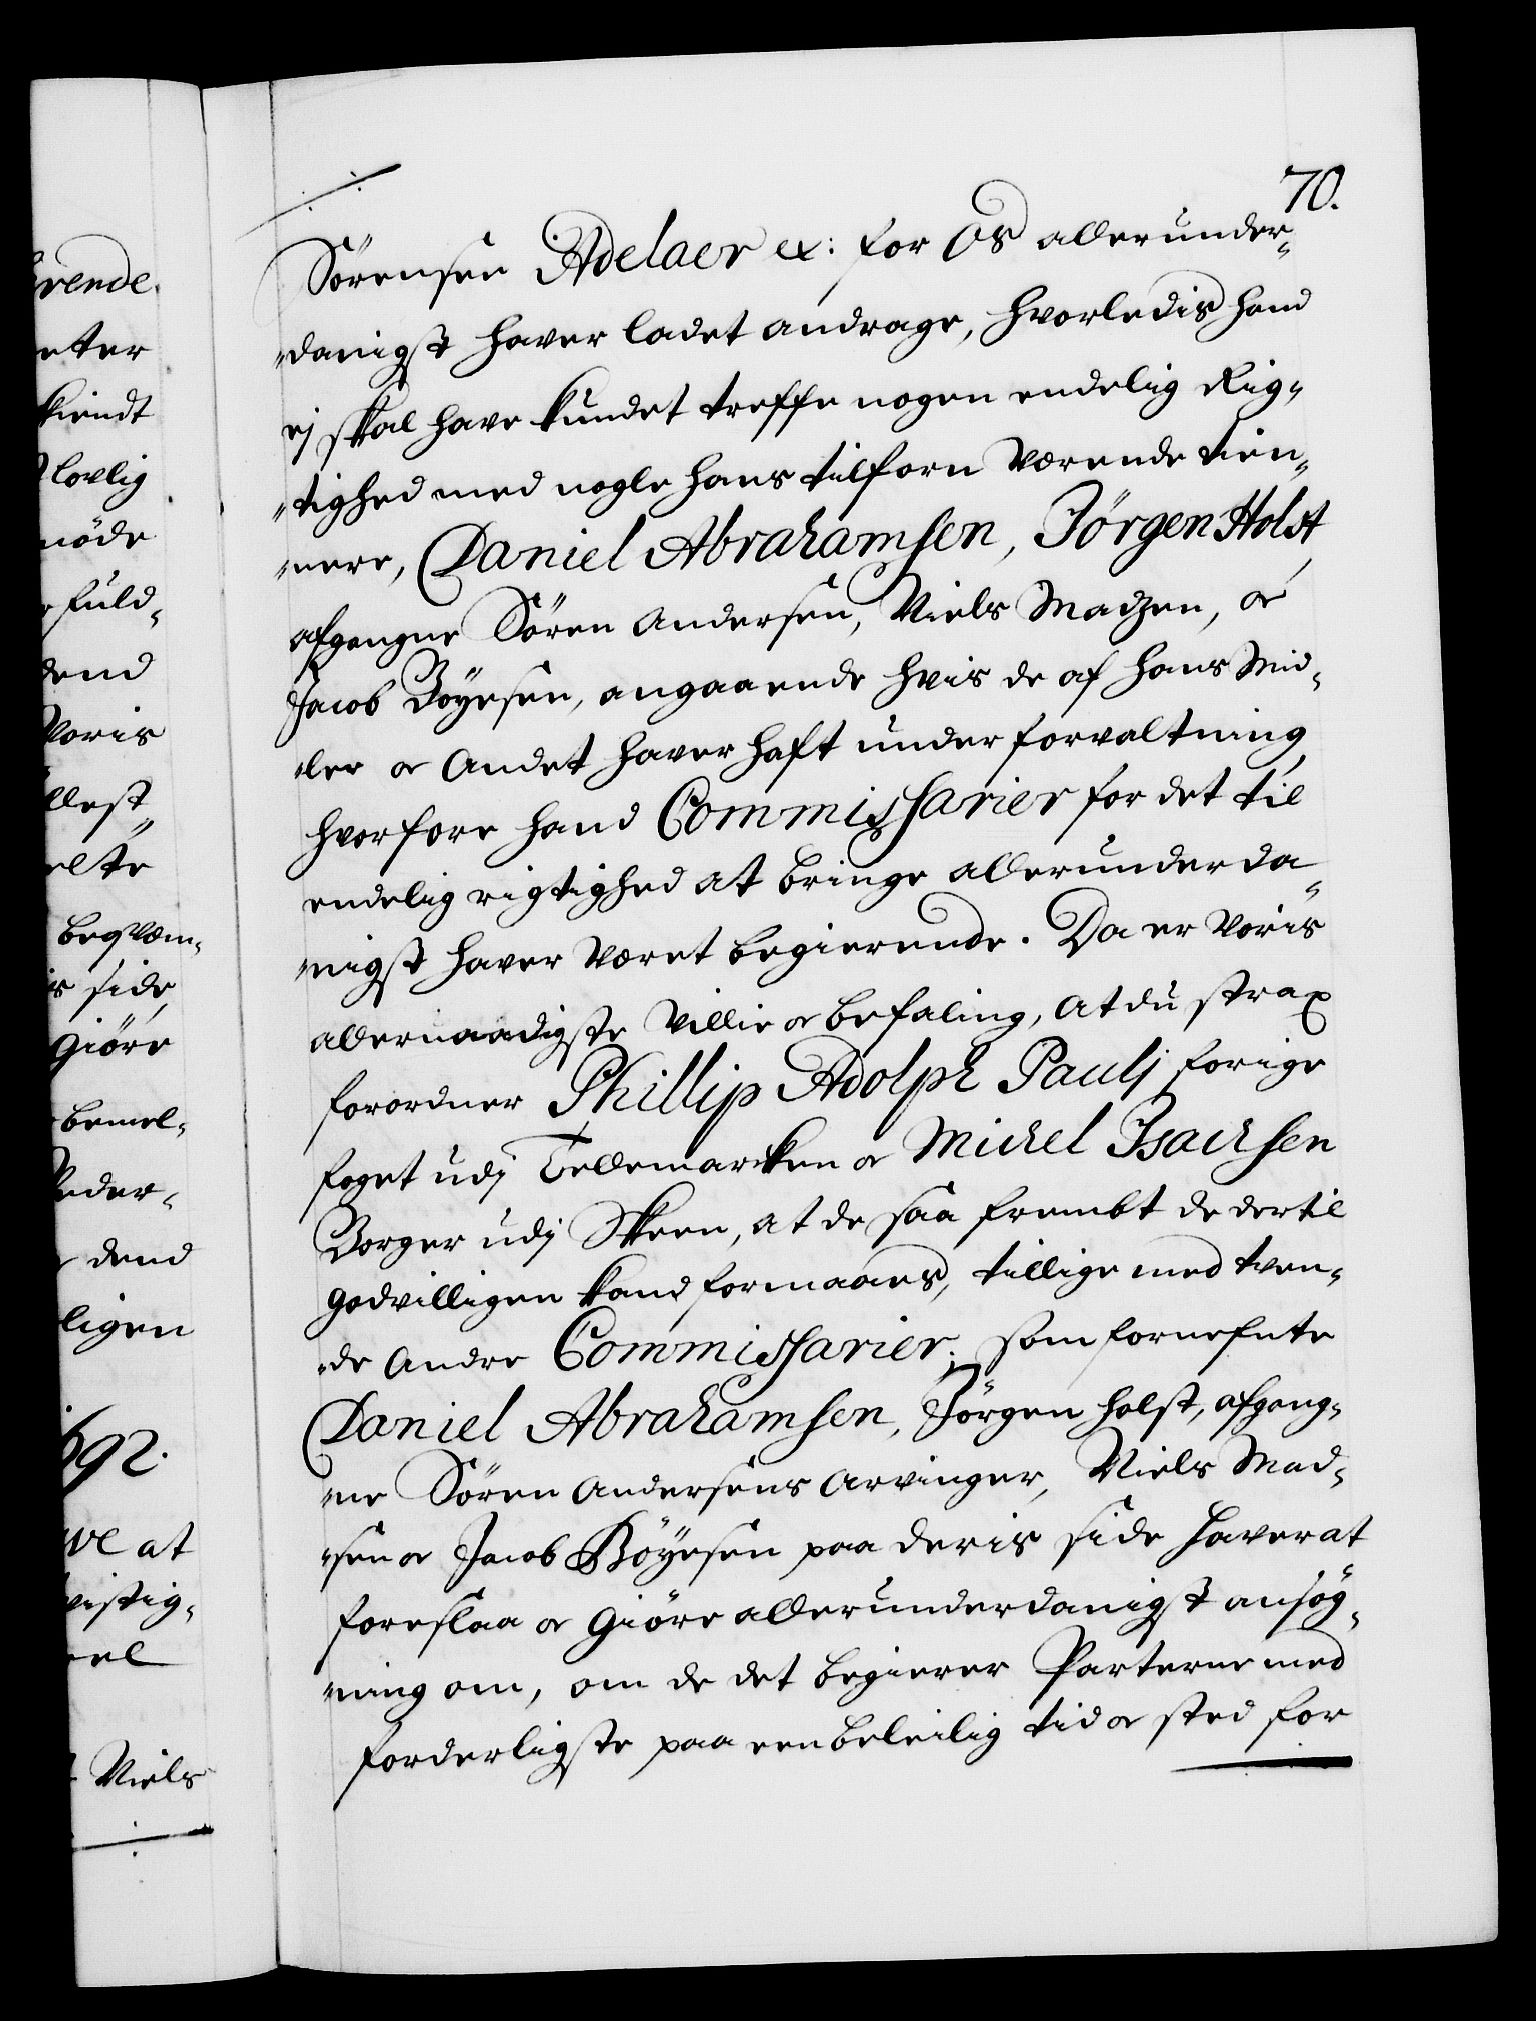 70.
Sörensen Adelaer ex: for Os allerunder-
danigst haver ladet andrage, hvorledis hand
ej skal have kundet treffe nogen endelig Rig-
tighed med nogle hans tilforn værende tien-
nere, Daniel Abrahamsen, Jörgen Holst,
afgangne Sören Andersen, Niels Madzen, oc
Jacob Böyesen, angaaende hvis de af hans Mid-
ler oc Andet haver haft under forvaltning,
hvorfore hand Commissarier for det til
endelig rigtighed at bringe allerunderda-
nigst haver været begierende. Da er Voris
allernaadigste Villie oc befaling, at du strax
forordner Phillip Adolph Paulj forige
foget udj Tellemarcken oc Michel Isachsen
Borger udj Skeen, at de saa frembt de dertil
godvilligen kand formaaes, tillige med tven-
de Andre Commissarier, som fornefnte
Daniel Abrahamsen, Jörgen Holst, afgang-
ne Sören Andersens Arvinger, Niels Mad-
sen oc Jacob Böyesen paa deris side haver at
foreslaa oc Giöre allerunderdanigst ansög-
ning om, om de det begierer Parterne med
forderligste paa een beleilig tid oc sted for
rende
eter
kiendt
lovlig
möde
fuld-
dend
Voris
llest
elte
beqvem-
is side,
Giöre
bemel-
Peder-
dend
ligen
1692.
ve at
vistig-
eel
Niels